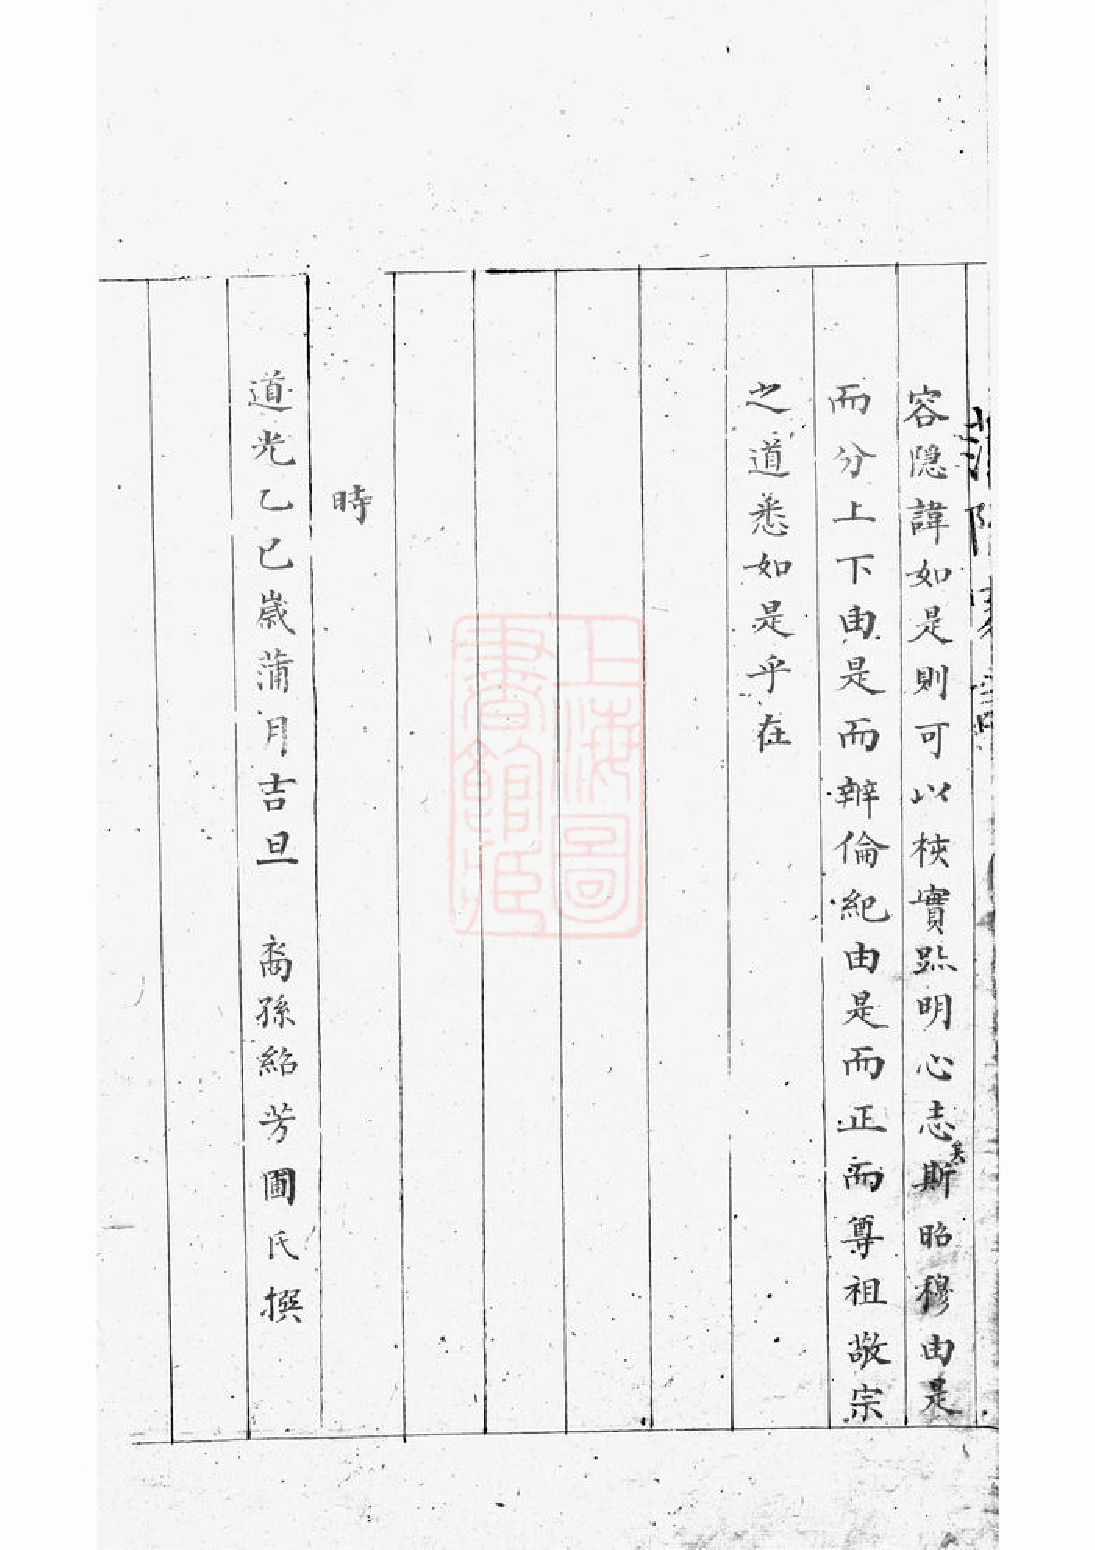 容隐諱如是則可以核實跡明心志矣斯昭穆由是
而分上下由是而辨倫紀由是而正而尊祖敬宗
之道悉如是乎在
時
道光乙巳歲蒲月吉旦 裔孫紹芳圃氏撰
上海圖書館藏